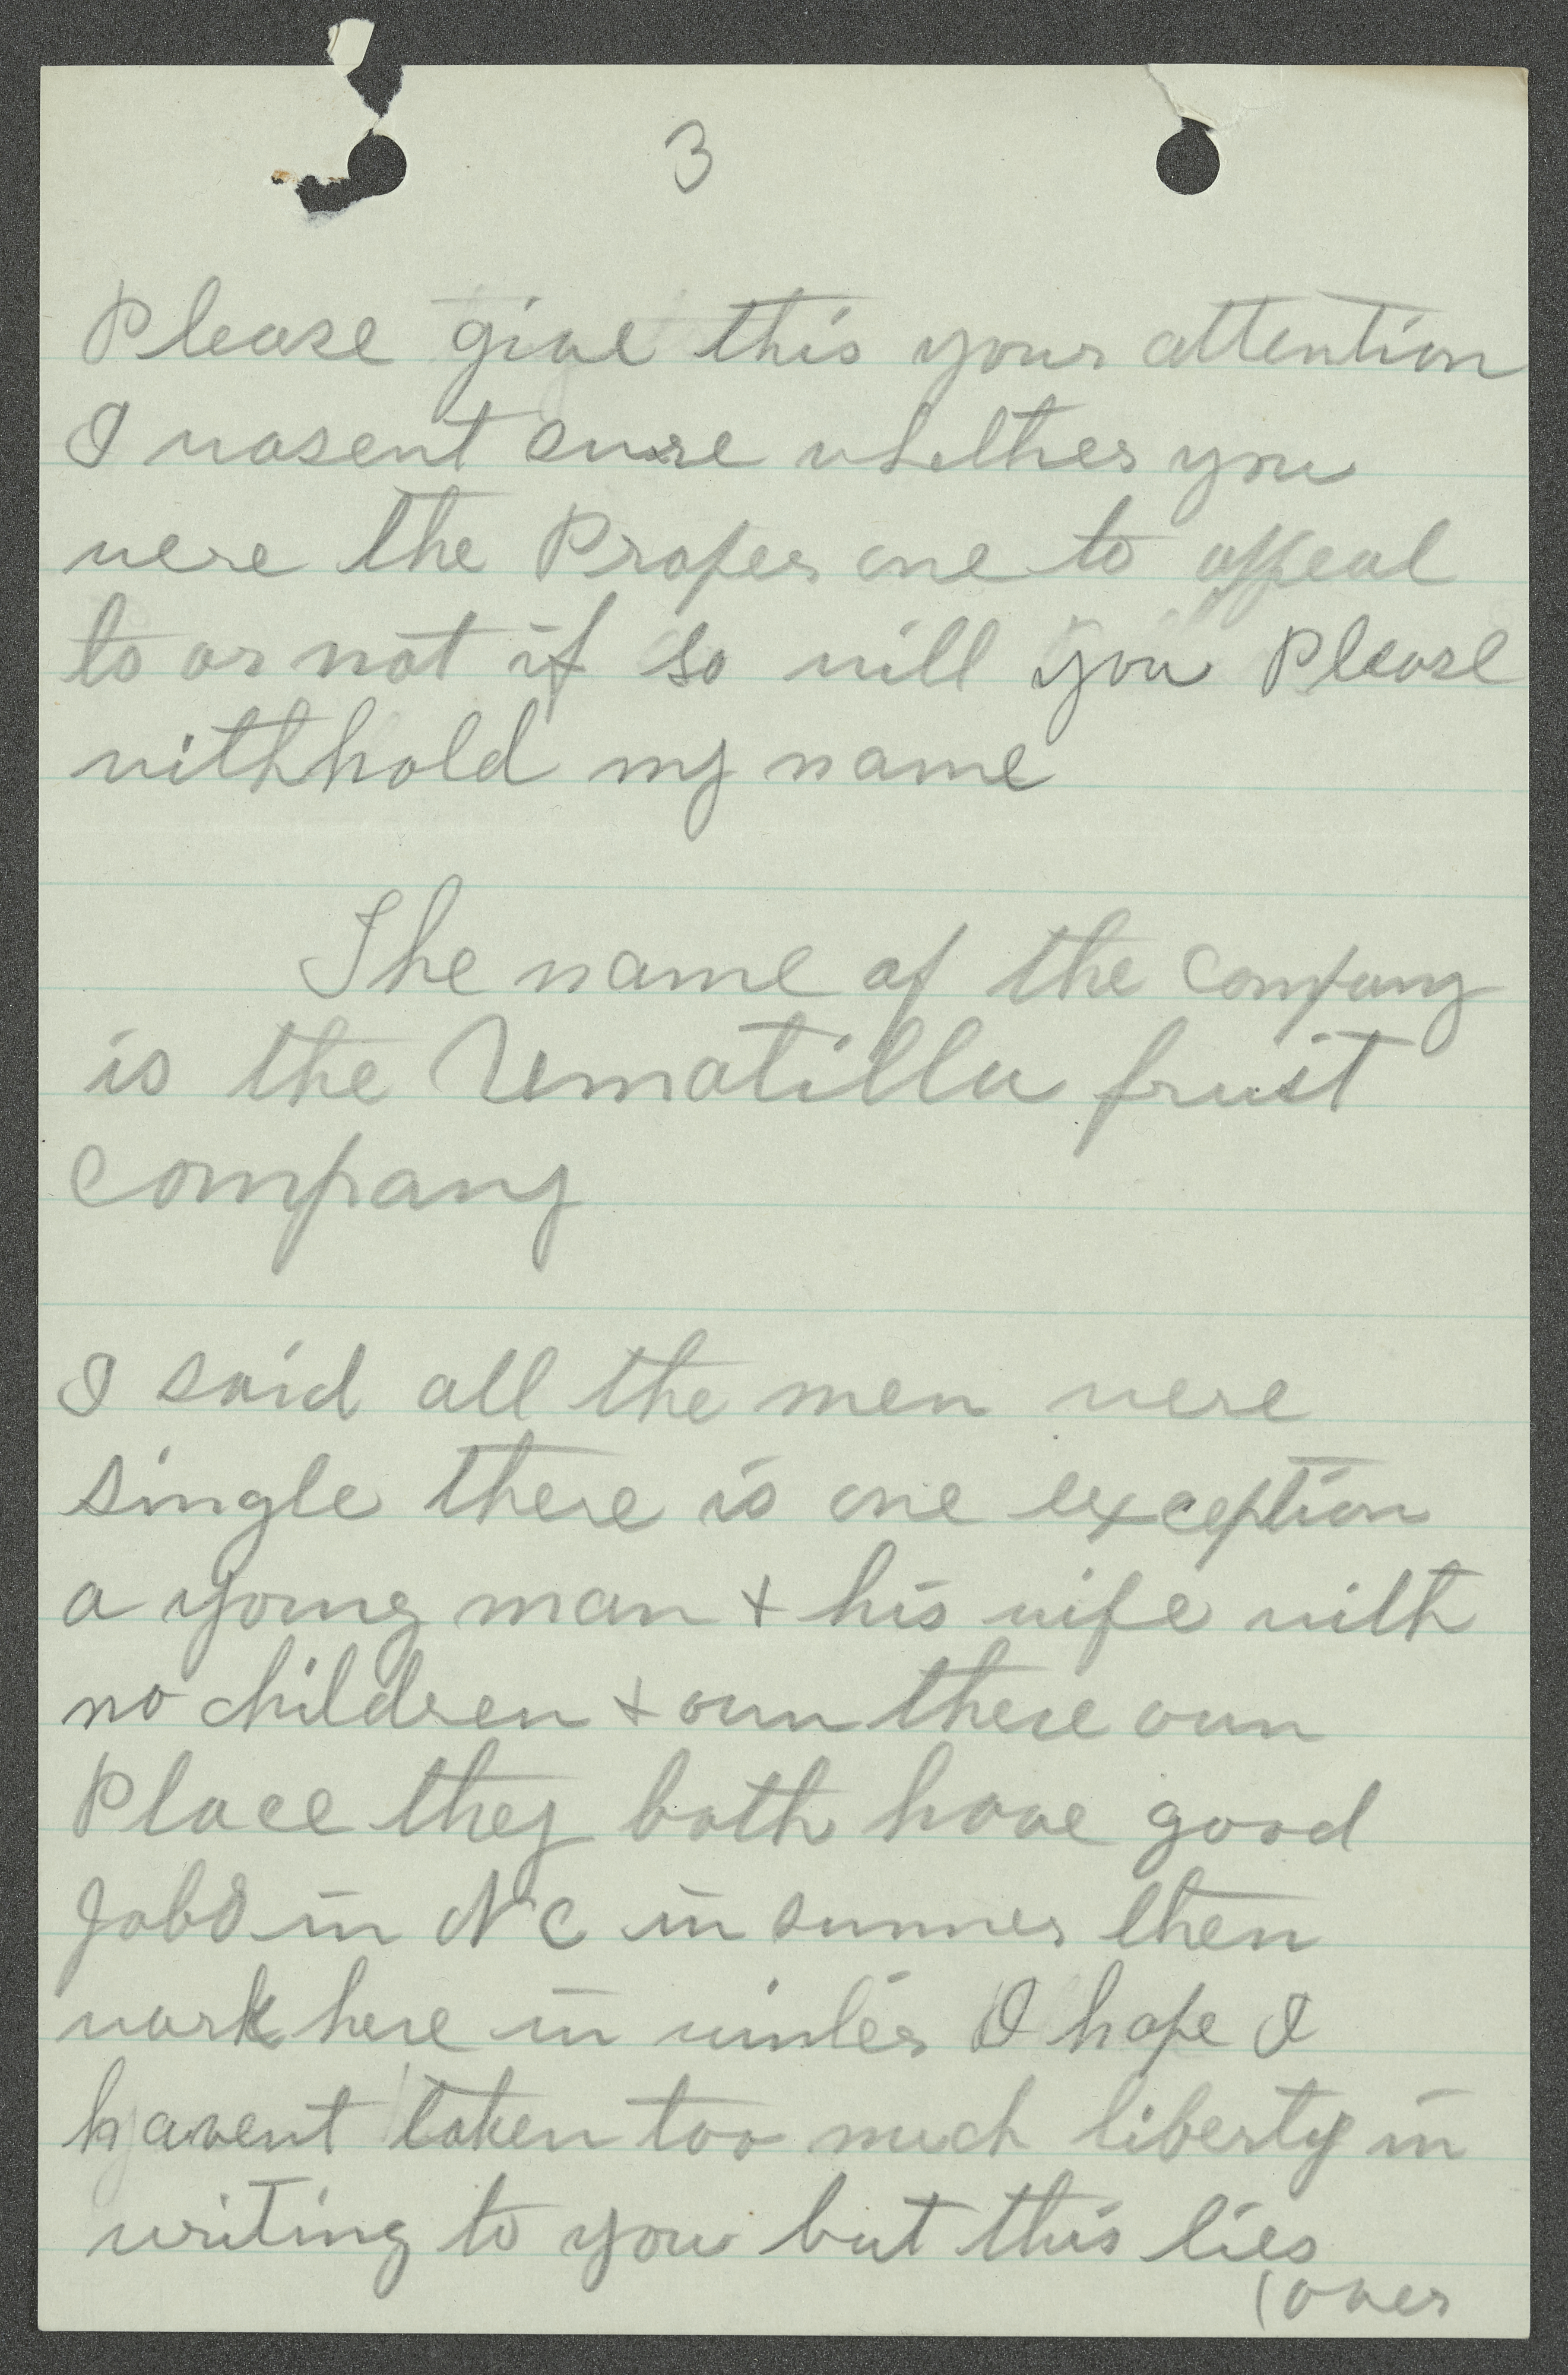 3
Please give this your attention
I wasent sure whether you
were the Proper one to appeal
to or not if so will you Please
withhold my name
The name of the Company
is the Umatilla fruit
Company
I said all the men were
single there is one exception
a young man + his wife with
no children + own there own
Place they both have good
Jobs in N C in summer then
work here in winter I hope I
havent taken too much liberty in
writing to you but this lies
(over